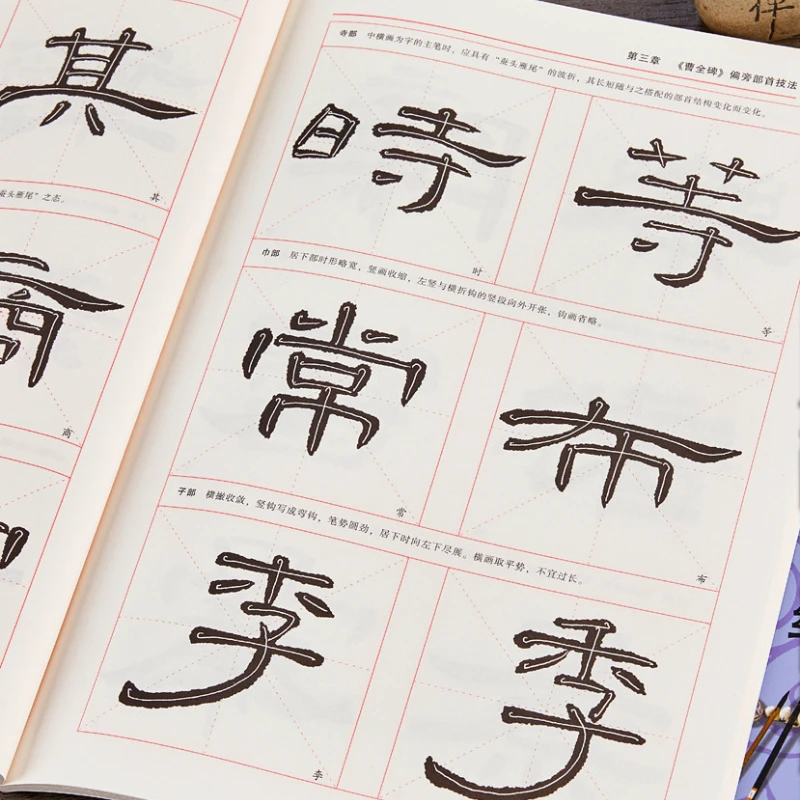 其
其
蚕头雁尾"之态。
第三章 《曹全碑》偏旁部首技法
寺部 中横画为字的主笔时，应具有"蚕头雁尾"的波折，其长短随与之搭配的部首结构变化而变化。
時 等
时 等
巾部 居下部时形略宽，竖画收缩，左竖与横折钩的竖段向外开张，钩画省略。
常 布
常 布
子部 横撇收敛，竖钩写成弯钩，笔势圆劲，居下时向左下尽展。横画取平势，不宜过长。
李 季
李